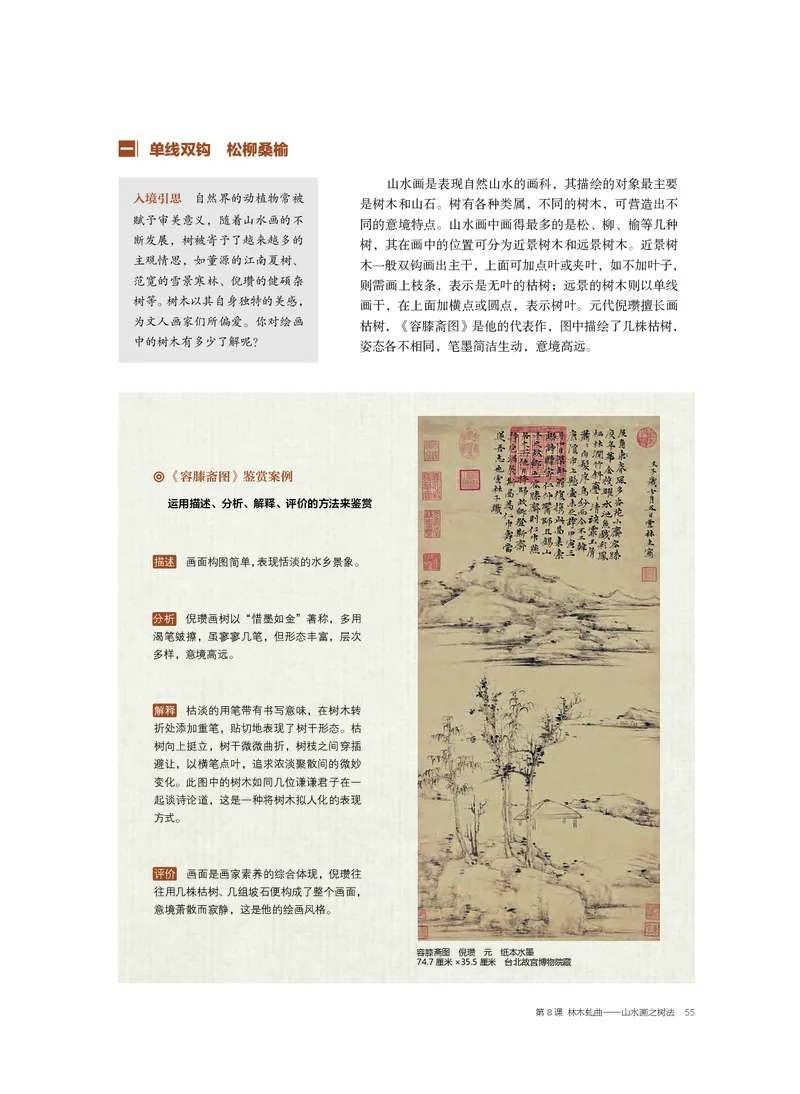 一 单线双钩 松柳桑榆
入境引思 自然界的动植物常被
赋予审美意义，随着山水画的不
断发展，树被寄予了越来越多的
主观情思，如董源的江南夏树、
范宽的雪景寒林、倪瓒的健硕杂
树等。树木以其自身独特的美感，
为文人画家们所偏爱。你对绘画
中的树木有多少了解呢？
山水画是表现自然山水的画科，其描绘的对象最主要
是树木和山石。树有各种类属，不同的树木，可营造出不
同的意境特点。山水画中画得最多的是松、柳、榆等几种
树，其在画中的位置可分为近景树木和远景树木。近景树
木一般双钩画出主干，上面可加点叶或夹叶，如不加叶子，
则需画上枝条，表示是无叶的枯树；远景的树木则以单线
画干，在上面加横点或圆点，表示树叶。元代倪瓒擅长画
枯树，《容膝斋图》是他的代表作，图中描绘了几株枯树，
姿态各不相同，笔墨简洁生动，意境高远。
《容膝斋图》鉴赏案例
运用描述、分析、解释、评价的方法来鉴赏
描述 画面构图简单，表现恬淡的水乡景象。
分析 倪瓒画树以“惜墨如金”著称，多用
渴笔皴擦，虽寥寥几笔，但形态丰富，层次
多样，意境高远。
解释 枯淡的用笔带有书写意味，在树木转
折处添加重笔，贴切地表现了树干形态。枯
树向上挺立，树干微微曲折，树枝之间穿插
避让，以横笔点叶，追求浓淡聚散间的微妙
变化。此图中的树木如同几位谦谦君子在一
起谈诗论道，这是一种将树木拟人化的表现
方式。
评价 画面是画家素养的综合体现，倪瓒往
往用几株枯树、几组坡石便构成了整个画面，
意境萧散而寂静，这是他的绘画风格。
容膝斋图 倪瓒 元 纸本水墨
74.7 厘米 ×35.5 厘米 台北故宫博物院藏
第 8 课 林木虬曲——山水画之树法 55